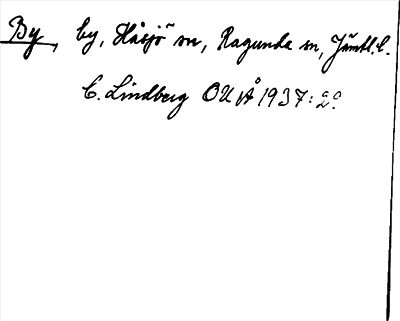 By, by, Håsjö sn, Ragunda sn, Jämtl. l.
C. Lindberg OUÅ 1937: 20